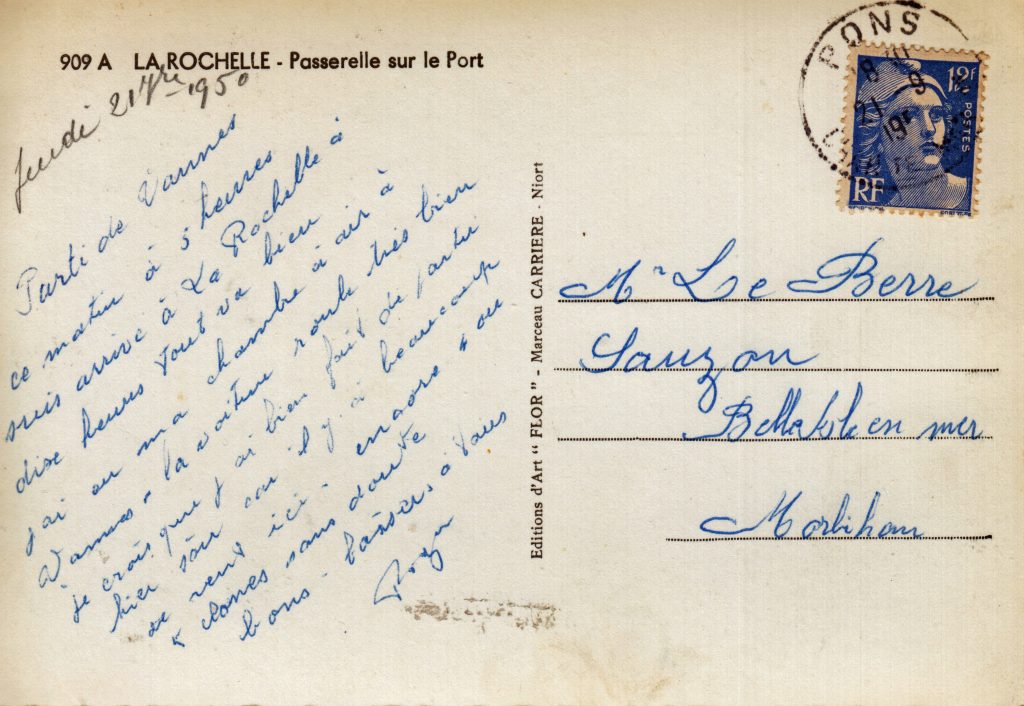 909 A LA ROCHELLE - Passerelle sur le Port
Jeudi 21 7bre 1950
Parti de Vannes
ce matin à 5 heures
suis arrivé à La Rochelle à
dixe heures tout va bien
j'ai eu ma chambre à air à
Vannes - la voiture roule très bien
je crois que j'ai bien fait de partir
hier soir car il y à beaucoup
de vent ici - encore 4 ou
5 clones sans doute
bons - baisers à tous
Editions d'Art "FLOR" - Marceau CARRIERE - Niort
PONS
8 H
21 - 9
195
CHARENTE
12F
POSTES
RF
Mr Le Berre
Sauzon
Belle Isle en mer
Morbihan